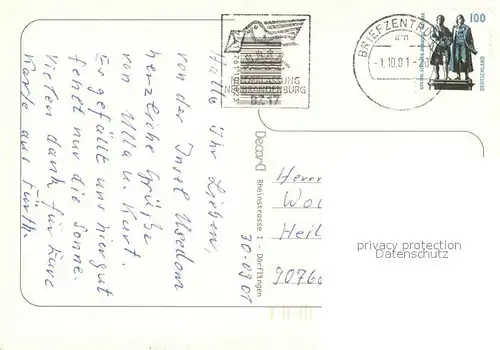 Hallo Ihr Lieben,
von der Insel Usedom
herzliche Grüße
von Ulla u. Kurt.
Es gefällt uns hier gut
fehlt nur die Sonne.
Vielen Dank für Eure
Karte aus Fürth.
30.09.01
NIEDERLASSUNG
NEUBRANDENBURG
BZ 17
BRIEFZENTRUM
am
-1.10.01
100
DEUTSCHLAND
Decard
Rheinstrasse 1 - Dörflingen
Herrn
Heil
9076
privacy protection
Datenschutz